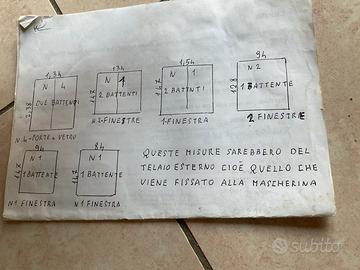 1,34
N 4
DUE BATTENTI
2,38
N. 4 - PORTE A VETRI
134
N 1
2 BATTENTI
147
N.2 - FINESTRE
1,54
N 1
2 BATTENTI
147
1 - FINESTRA
94
N 2
1 BATTENTE
128
2 FINESTRE
94
N 1
1 BATTENTE
147
N 1 FINESTRA
84
N 1
1 BATTENTE
147
N 1 FINESTRA
QUESTE MISURE SAREBBERO DEL
TELAIO ESTERNO CIOÉ QUELLO CHE
VIENE FISSATO ALLA MASCHERINA
subito